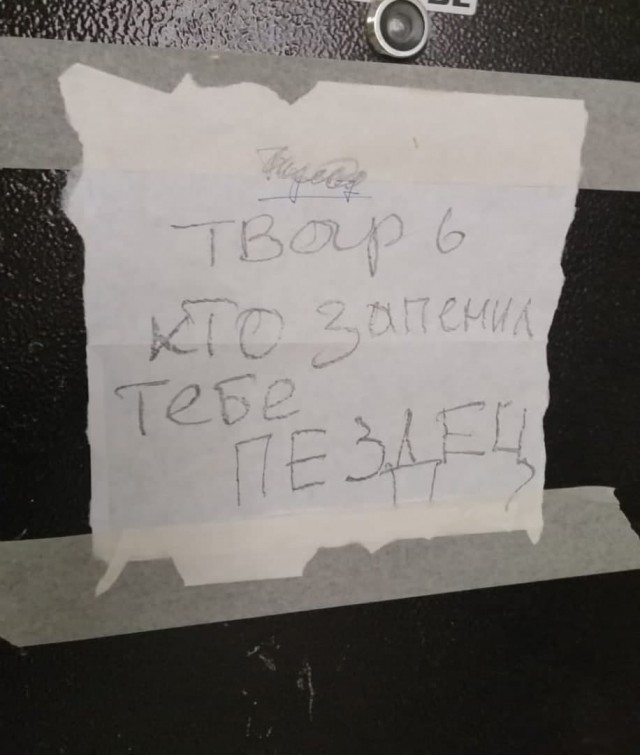 тварь
кто запенил
тебе
ПЕЗДЕЦ